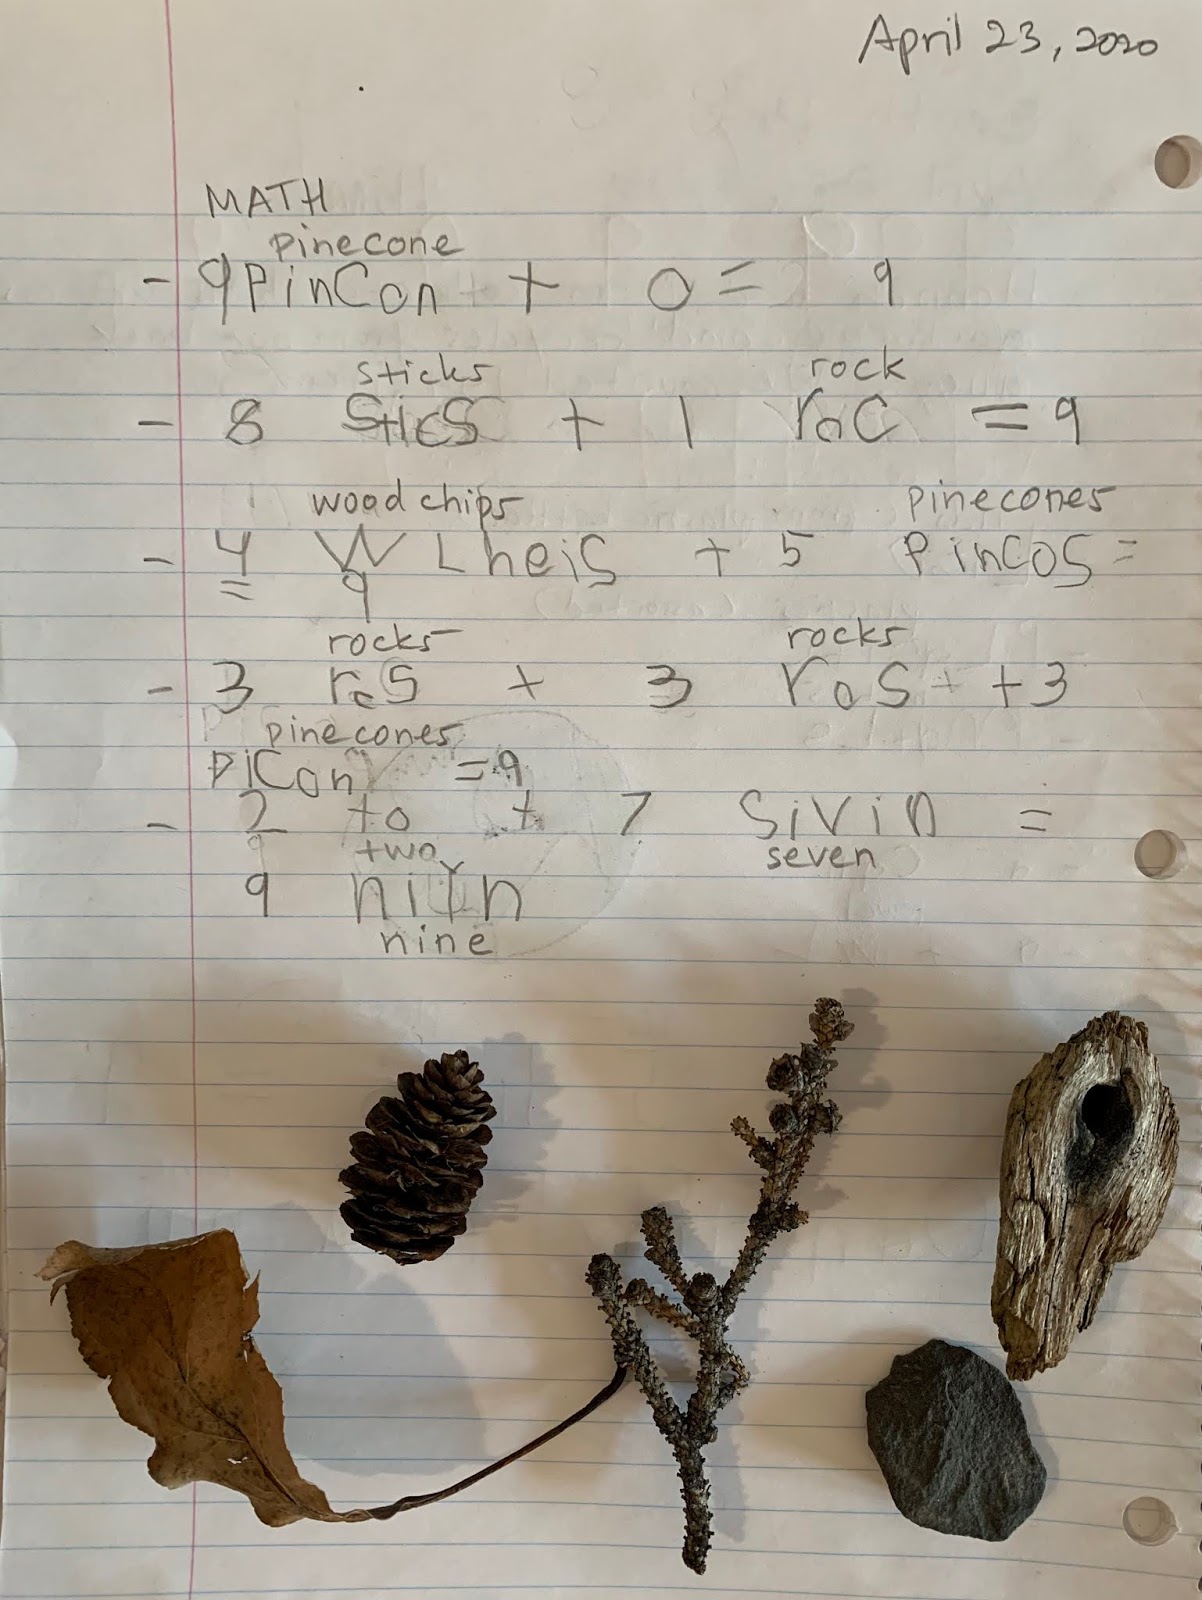 April 23, 2020
MATH
pinecone
- 9 PinCon + 0 = 9
sticks rock
- 8 SticS + 1 roC = 9
wood chips pinecones
- 4 W LheiS + 5 PinCoS =
= 9
rocks rocks
- 3 roS + 3 roS + +3
pinecones
PiCon = 9
- 2 to + 7 SiViN =
two seven
9 niYn
nine